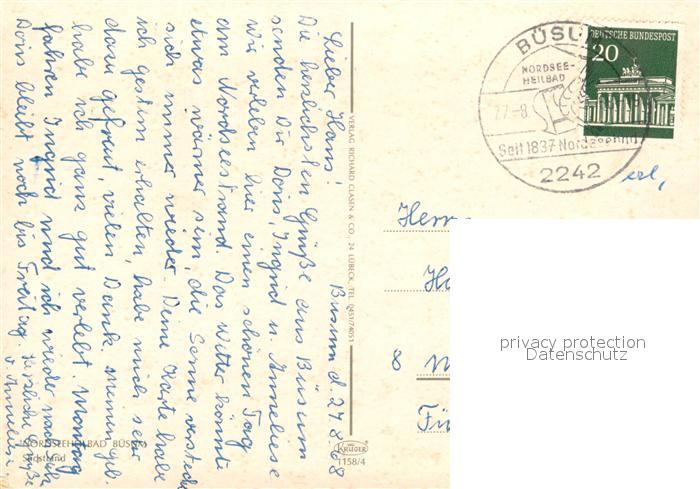 Büsum d 27.8.68
Lieber Hans!
Die herzlichsten Grüße aus Büsum
senden Dir Doris, Ingrid u. Anneliese
Wir erleben hier einen schönen Tag
am Nordseestrand. Das Wetter könnte
etwas wärmer sein, die Sonne versteckt
sich immer wieder. Deine Karte habe
ich gestern erhalten, habe mich sehr
dazu gefreut, vielen Dank. Meinen Geb.
habe ich ganz gut verlebt. Montag
fahren Ingrid und ich wieder nach
Doris bleibt noch bis Freitag. Herzliche Grüße
v. Anneliese
NORDSEEHEILBAD BÜSUM
Südstrand
VERLAG RICHARD CLASEN & CO., 24 LÜBECK, TEL. (0451) 74051
KRÜGER
1158/4
BÜSU
NORDSEE-
HEILBAD
27.-8.
Seit 1837 Nordseeheil
2242
DEUTSCHE BUNDESPOST
20
Herrn
8
privacy protection
Datenschutz